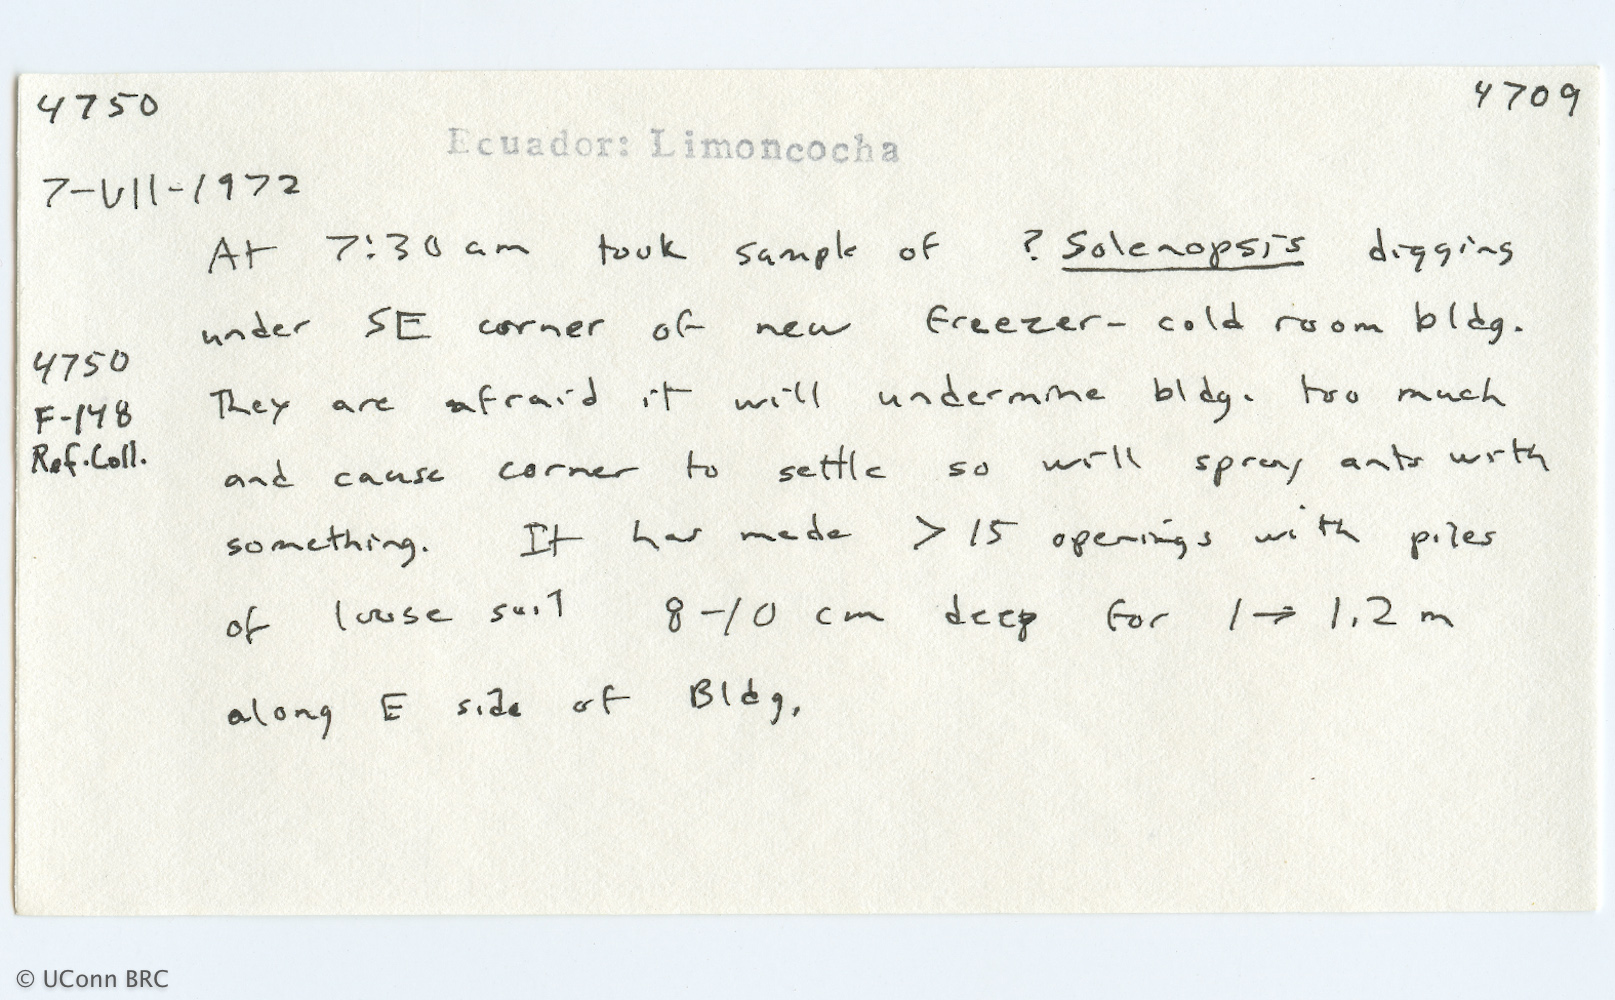 4750
4709
Ecuador: Limoncocha
7-VII-1972
At 7:30 am took sample of ? Solenopsis digging
under SE corner of new freezer- cold room bldg.
4750
F-148
Ref. Coll.
They are afraid it will undermine bldg. too much
and cause corner to settle so will spray ants with
something. It has made >15 openings with piles
of loose soil 8-10 cm deep for 1→1.2 m
along E side of Bldg.
© UConn BRC